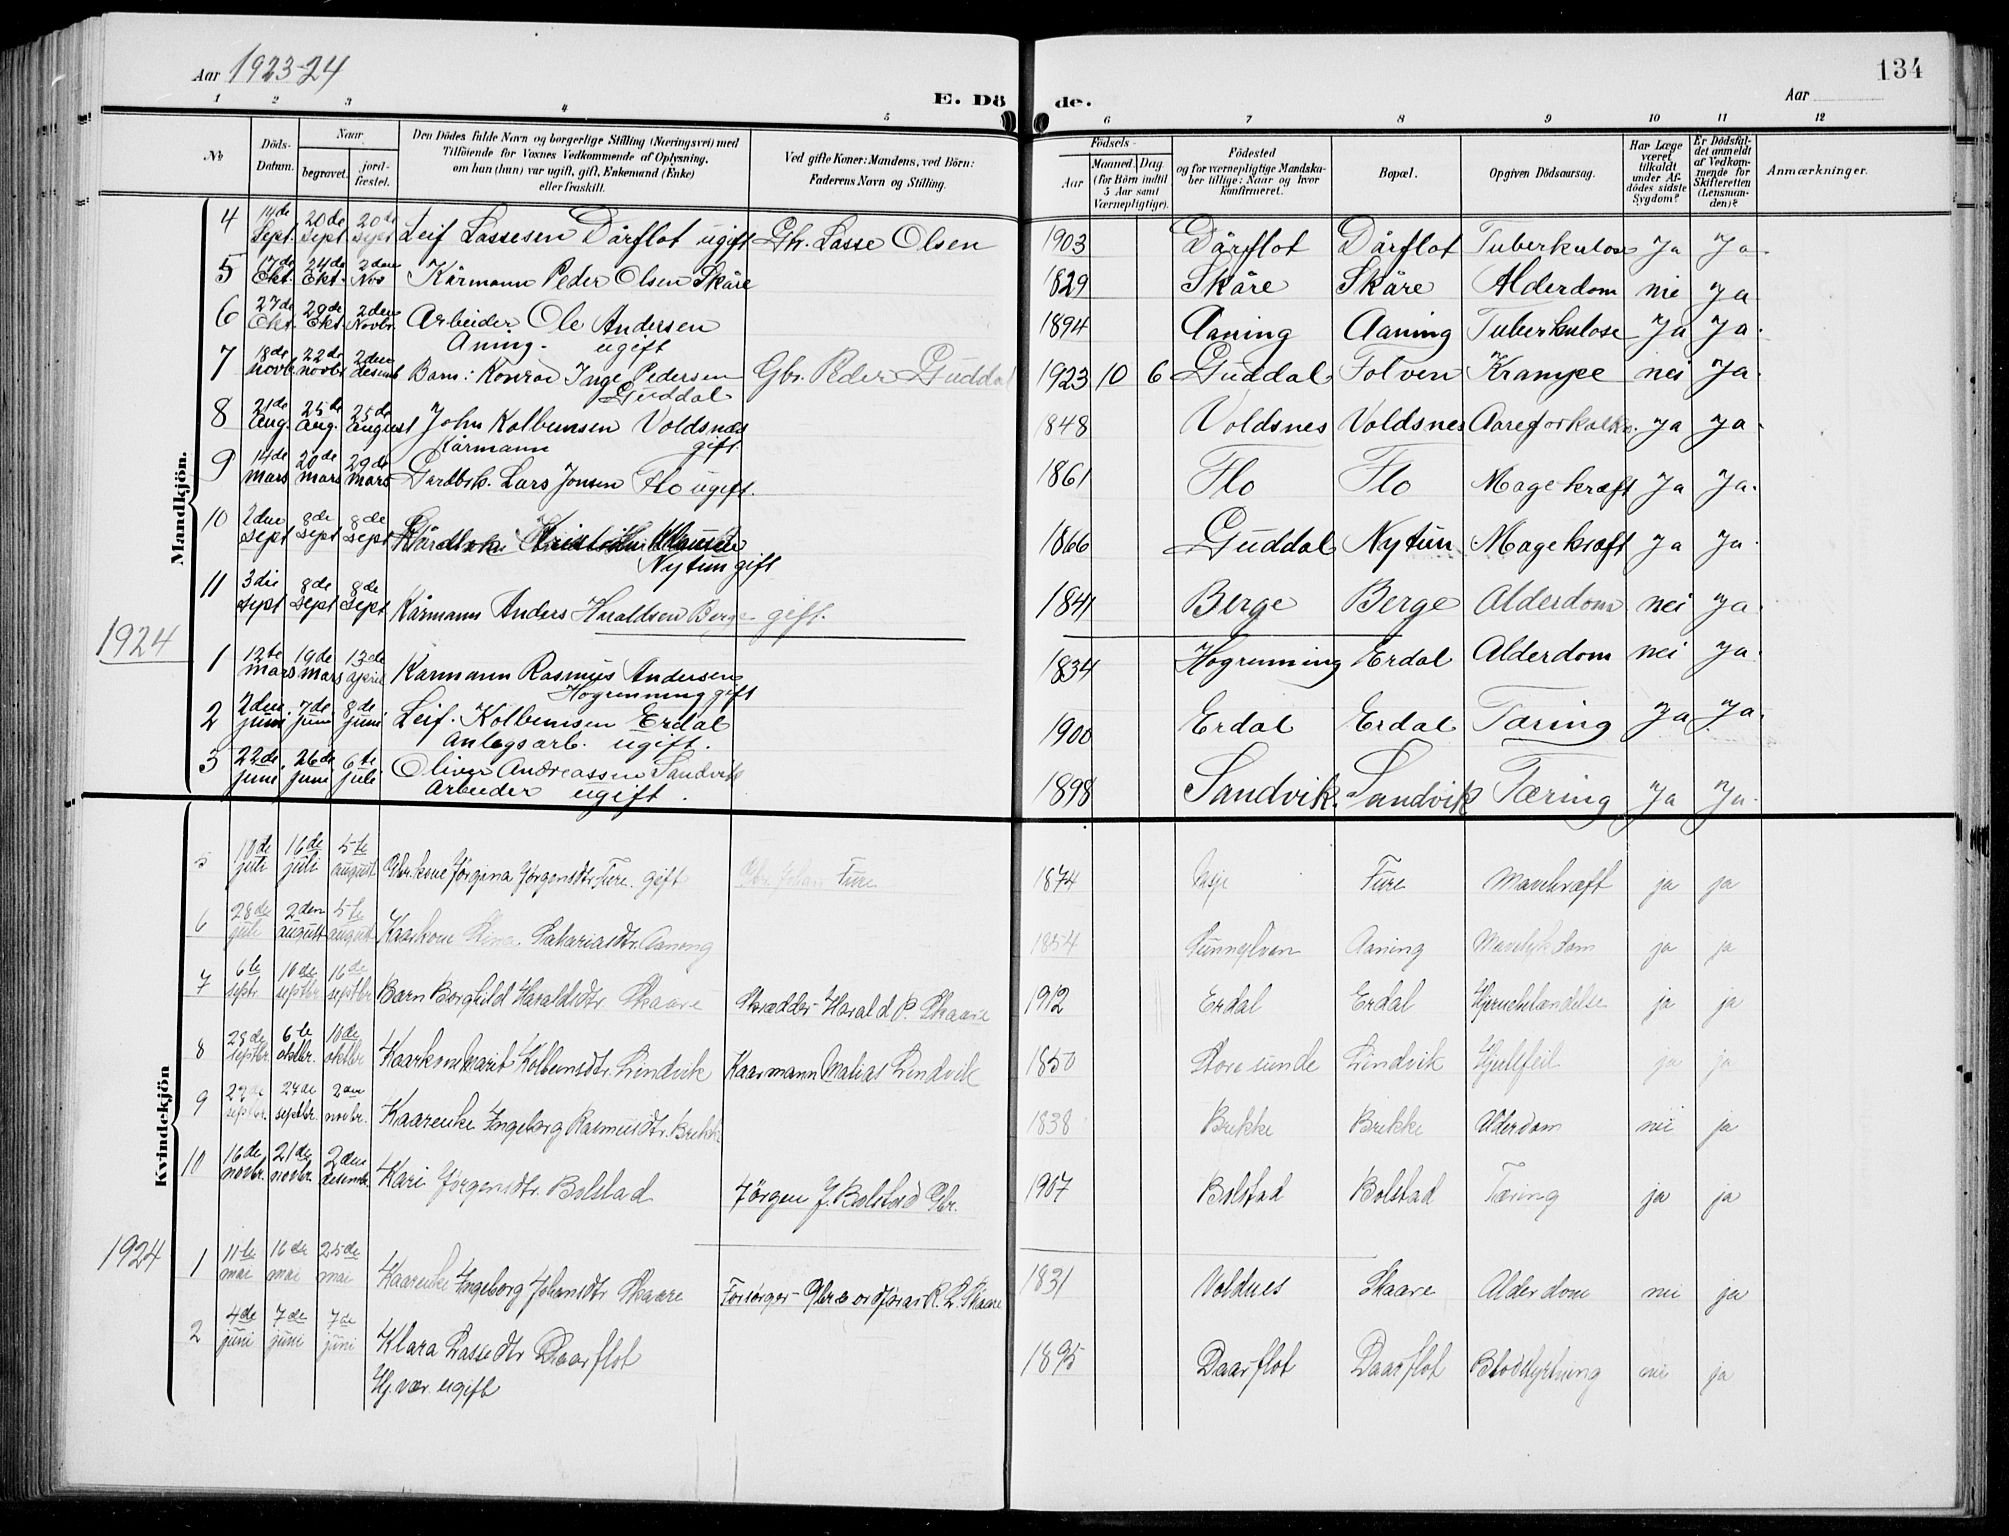 Aar 1923-24
134
Aar
E. Dö de.
1 2 3 4 5 6 7 8 9 10 11 12
№
Döds-Datum.
Naar
begravet.
jordfæstet.
Den Dödes fulde Navn og borgerlige Stilling (Næringsvei) med
Tilföiende for Voxnes Vedkommende af Oplysning,
om han (hun) var ugift, gift, Enkemand (Enke)
eller fraskilt.
Ved gifte Koner: Mandens, ved Börn:
Faderens Navn og Stilling.
Födsels-
Aar
Maaned Dag
(for Börn indtil
5 Aar samt
Værnepligtige).
Födested
og for værnepligtige Mandskaber tillige: Naar og hvor
konfirmeret.
Bopæl.
Opgiven Dödsaarsag.
Har Læge
været
tilkaldt
under Afdödes sidste
Sygdom?
Er Dödsfaldet anmeldt
af Vedkommende for
Skifteretten
(Lensmanden)?
Anmærkninger.
Mandkjön.
4 14de Sept. 20de Sept 20de Sept Leif Lassesen Dårflot ugift Gbr. Lasse Olsen 1903 Dårflot Dårflot Tuberkulose Ja Ja
5 17de Okt. 24de Okt. 2den Nov Kårmann Peder Olsen Skåre 1829 Skåre Skåre Alderdom nei Ja
6 27de Okt. 29de Okt 2den Novbr. Arbeider Ole Andersen 1894 Aaning Aaning Tuberkulose Ja Ja
Aning. ugift
7 18de novb. 22de novbr 2den desemb Barn: Konrad Inge Pedersen Gbr. Peder Guddal 1923 10 6 Guddal Tolven Krampe nei Ja
Guddal
8 21de Aug. 25de Aug. 25de August John Kolbeinsen Voldsnes 1848 Voldsnes Voldsnes Aareforkalkn. Ja Ja
Kårmann gift
9 14de Mars 20de mars 29de Mars Gardbrk. Lars Jonsen Flo ugift. 1861 Flo Flo Magekræft Ja Ja
10 2den sept 8de sept 8de sept Gårdbrk. 1866 Guddal Nytun Magekræft Ja Ja
Nytun gift
11 3die sept 8de sept 8de sept Kårmann Anders Haraldsen Berge gift. 1841 Berge Berge Alderdom nei Ja
1924
1 12te mars 19de mars 13de April Karmann Rasmus Andersen 1834 Hogrenning Erdal Alderdom nei Ja
Hogrenning gift
2 2den juni 7de juni 8de juni Leif. Kolbeinsen Erdal 1900 Erdal Erdal Tæring Ja Ja
Anlegsarb. ugift.
3 22de juni 26de juni 6te juli Oliver Andreassen Sandvik 1898 Sandvik Sandvik Tæring Ja Ja
Arbeider ugift.
Kvindekjön
5 10de juli 16de juli 5te august Gbr. kone Jørgina Jørgensdtr. Fure. gift Fure 1874 Fure Mavekræft ja ja
6 28de juli 2den august 5te august Kaarkone Stina Sakariasdtr. Aanong 1854 Sunnylven Aaning ja ja
7 6te septr 10de septbr 16de septbr Barn Borghild Haraldsdtr. Skaare Skrædder Harald P. Skaare 1912 Erdal Erdal ja ja
8 28de septbr 6te oktbr. 10de oktbr Kaarkone Marit Kolbeinsdtr. Lindvik Kaarmann Matias Lindvik 1850 Storesunde Lindvik Hjertfeil ja ja
9 22de septbr. 27de septbr. 2den novbr. Kaarenke Ingeborg Rasmusdtr. Brekke 1838 Brekke Brekke Alderdom nei ja
10 16de novbr. 21de novbr. 2den desembr. Kari Jørgensdtr. Bolstad Jørgen J. Bolstad Gbr. 1907 Bolstad Bolstad Tæring ja ja
1924
1 11te mai 16de mai 25de mai Kaarenke Ingeborg Johansdtr Skaare Forsørger - Gbr. R. L. Skaare 1831 Voldnes Skaare Alderdom nei ja
2 4de juni 7de juni 7de juni Klara Lassedtr Daarflot 1895 Daarflot Daarflot Blodstyrtning nei ja
Hj. vær. ugift